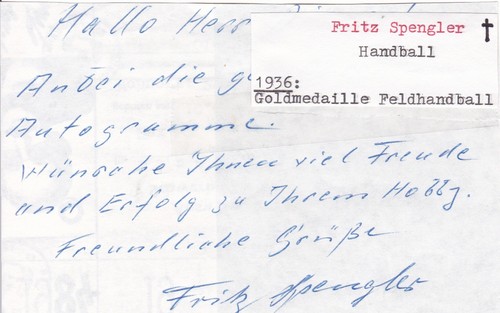 Hallo Herr
Fritz Spengler †
Handball
1936:
Goldmedaille Feldhandball
Anbei die
Autogramme.
Wünsche Ihnen viel Freude
und Erfolg zu Ihrem Hobby.
Freundliche Grüße
Fritz Spengler